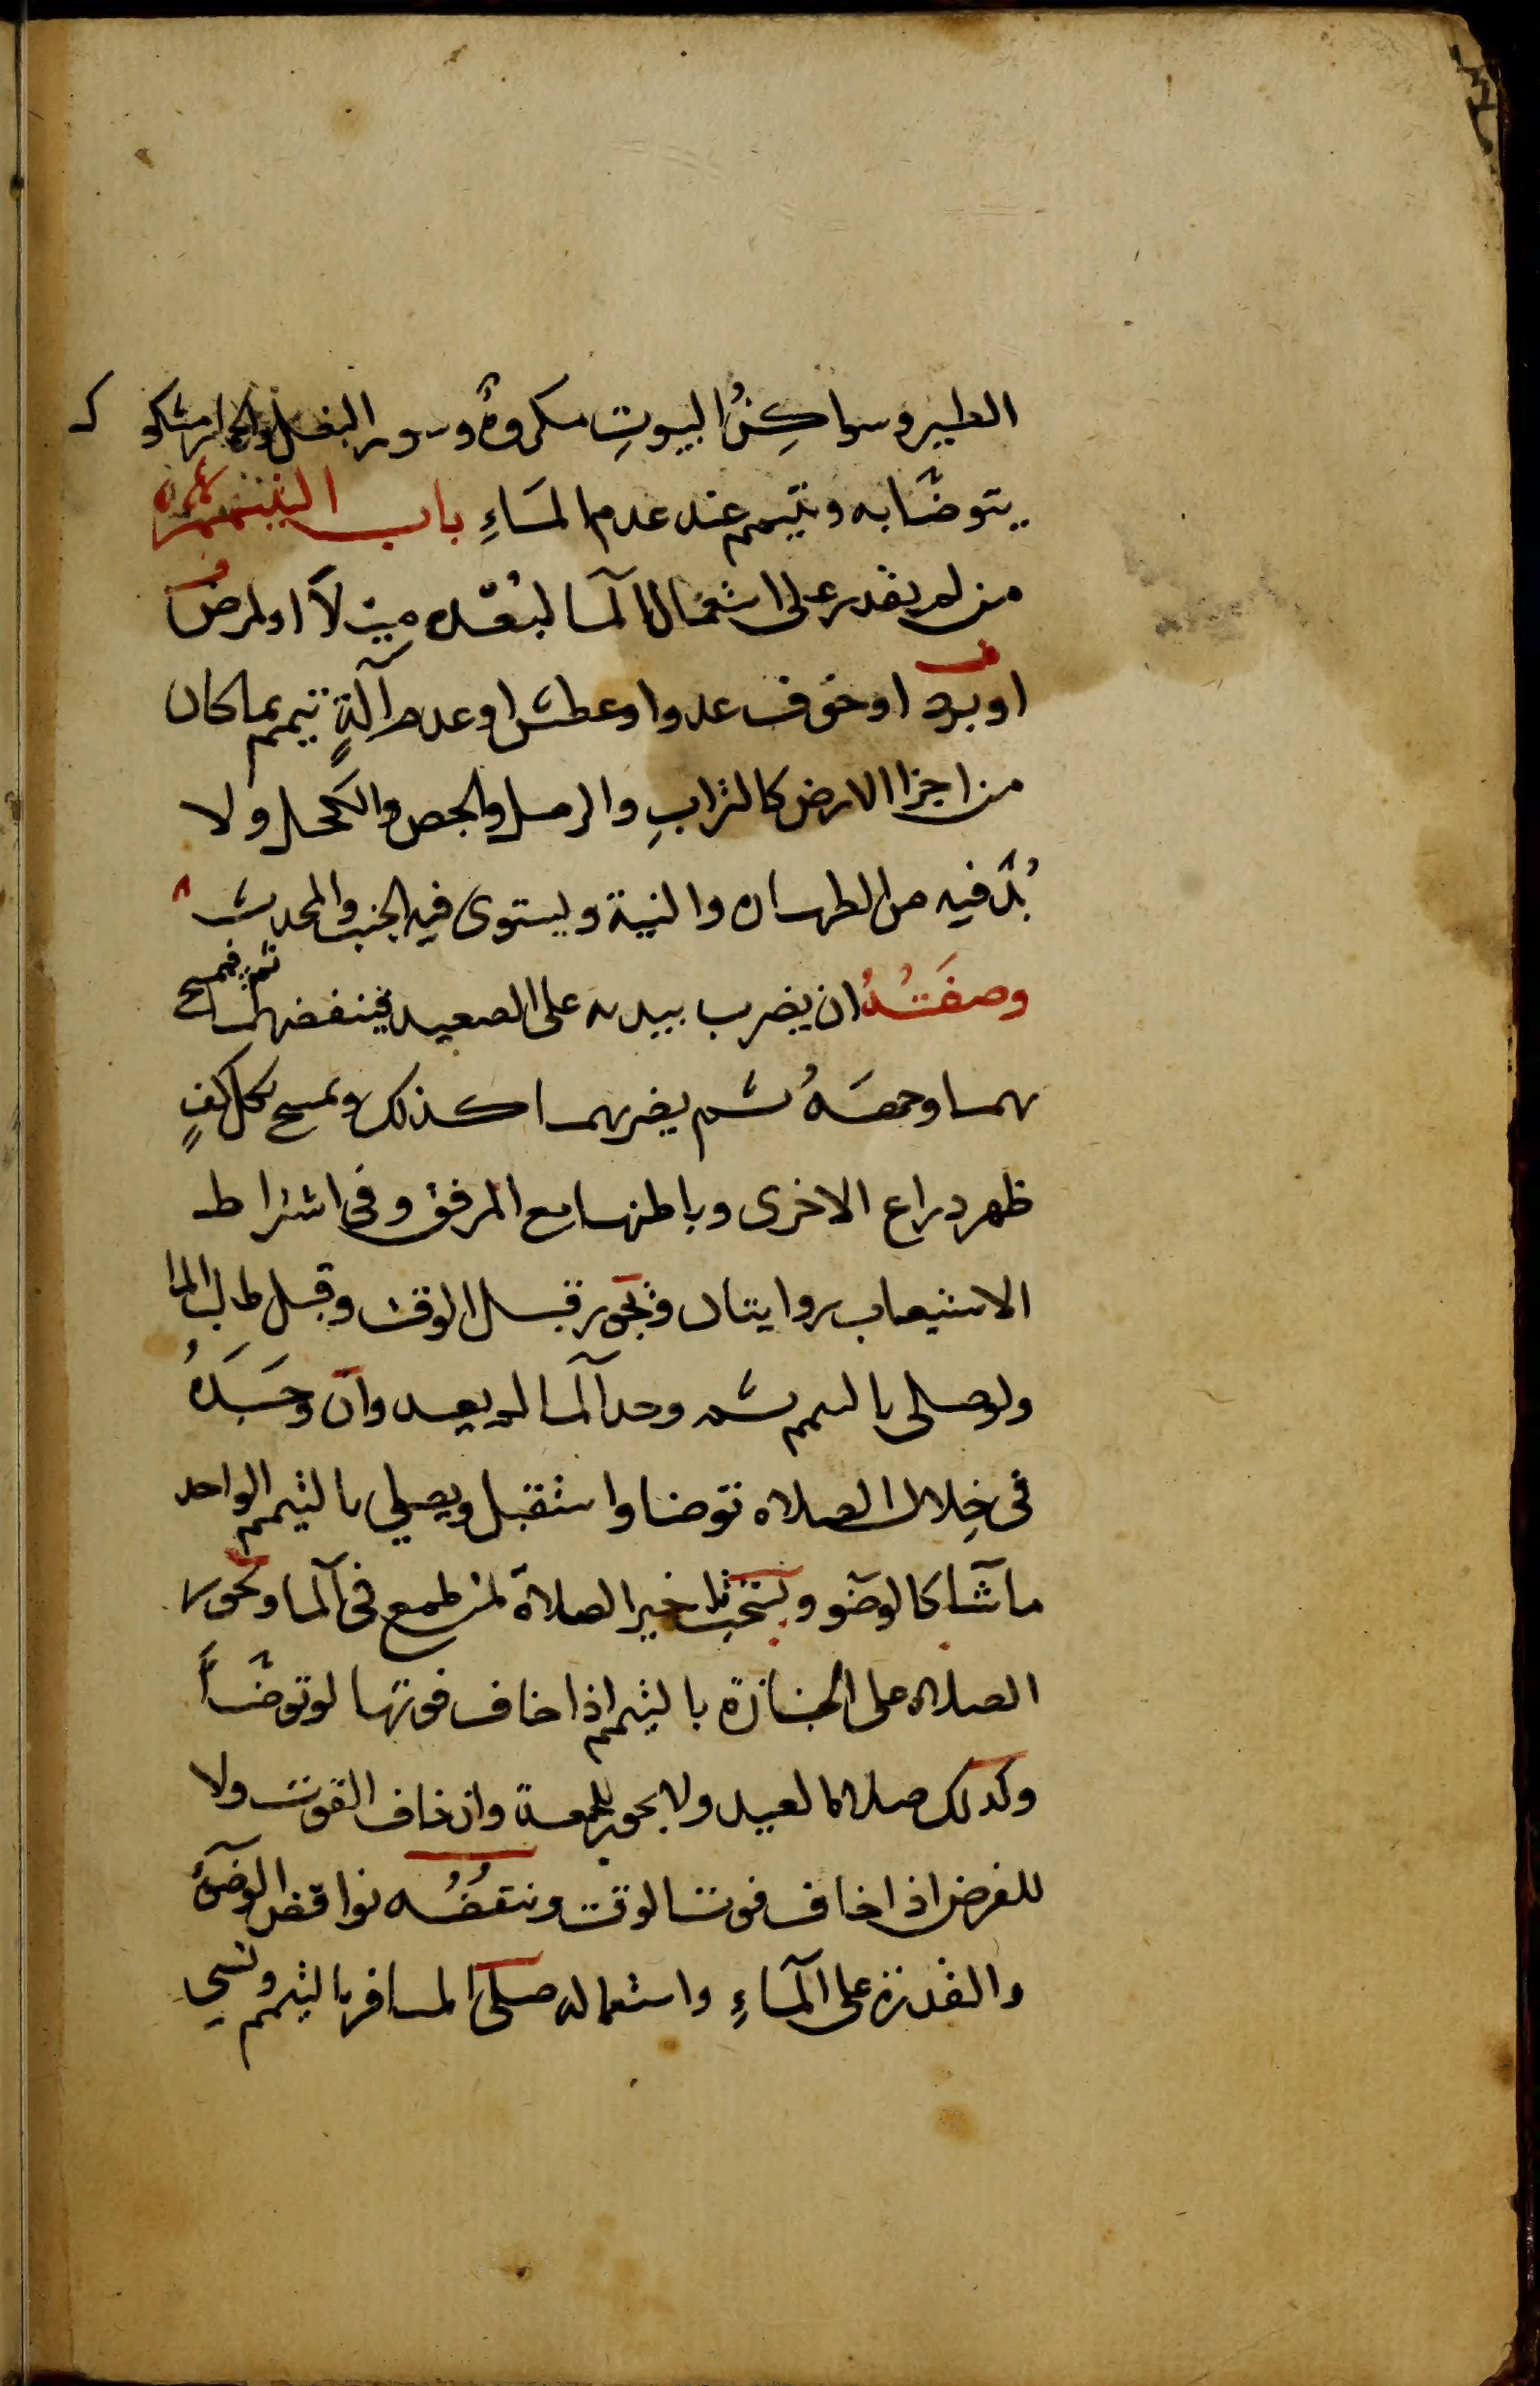 الطير وسواكن البيوتِ مكروهٌ وسور البغل والحمار مشكوك
يتوضّا به ويتيمم عند عدم المَاءِ باب التيمم
من لم يقدر على استعمال المآ لبُعّده مِيْلاً او لمرض
او برد او خوف عدو او عطش او عدم آلةٍ تيمم بما كان
من اجزا الارض كالترابِ والرمل والجص والكحل ولا
بُدّ فيه من الطهاره والنية ويستوى فيه الجنب والمحدث
وصفَتُهُ ان يضرب بيديه على الصعيد فينفضهما ثم يمسح
بهما وجهَهُ ثم يضربهما كذلك ويمسح بكل كفٍ
ظهر دراع الاخرى وباطنها مع المرفق وفى اشتراط
الاستيعاب روايتان ويجوز قبل الوقت وقبل طلب الما
ولو صلى بالتيمم ثم وجد المآ لم يعد وان وجَدَهُ
فى خِلال الصلاه توضا واستقبل ويصلي بالتيمم الواحد
ما شآ كالوضو ويستحب تاخير الصلاة لمن طمع فى المآ ويجوز
الصلاه على الجنازة بالتيمم اذا خاف فوتها لو توضّأ
وكدلك صلاة العيد ولا يجوز للجمعة وان خاف الفوت ولا
للفرض اذا خاف فوت الوقت وينقضُه نواقض الوضوء
والقدرة على المآءِ واستعماله صلى المسافر بالتيمم ونسي